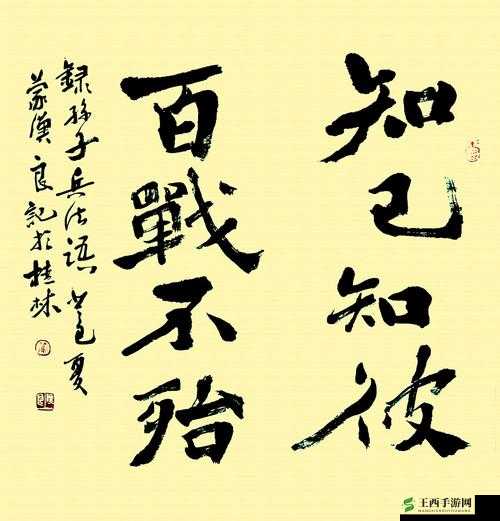 知己知彼
百戰不殆
錄孫子兵法語 夏
蒙漢良記於桂林
王西手游网